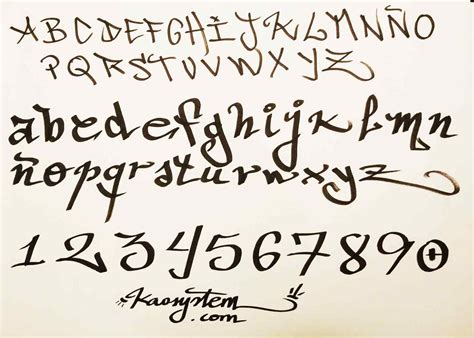 ABCDEFGHIJKLMNÑO
PQRSTUVWXYZ
abcdefghijklmn
ñopqrstuvwxyz
1234567890
Kaosystem
.com